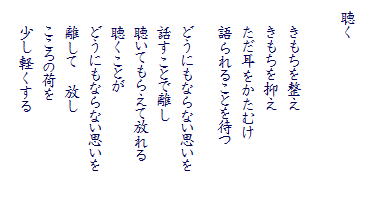 聴く
きもちを整え
きもちを抑え
ただ耳をかたむけ
語られることを待つ
どうにもならない思いを
話すことで離し
聴いてもらえて放れる
聴くことが
どうにもならない思いを
離して　放し
こころの荷を
少し軽くする